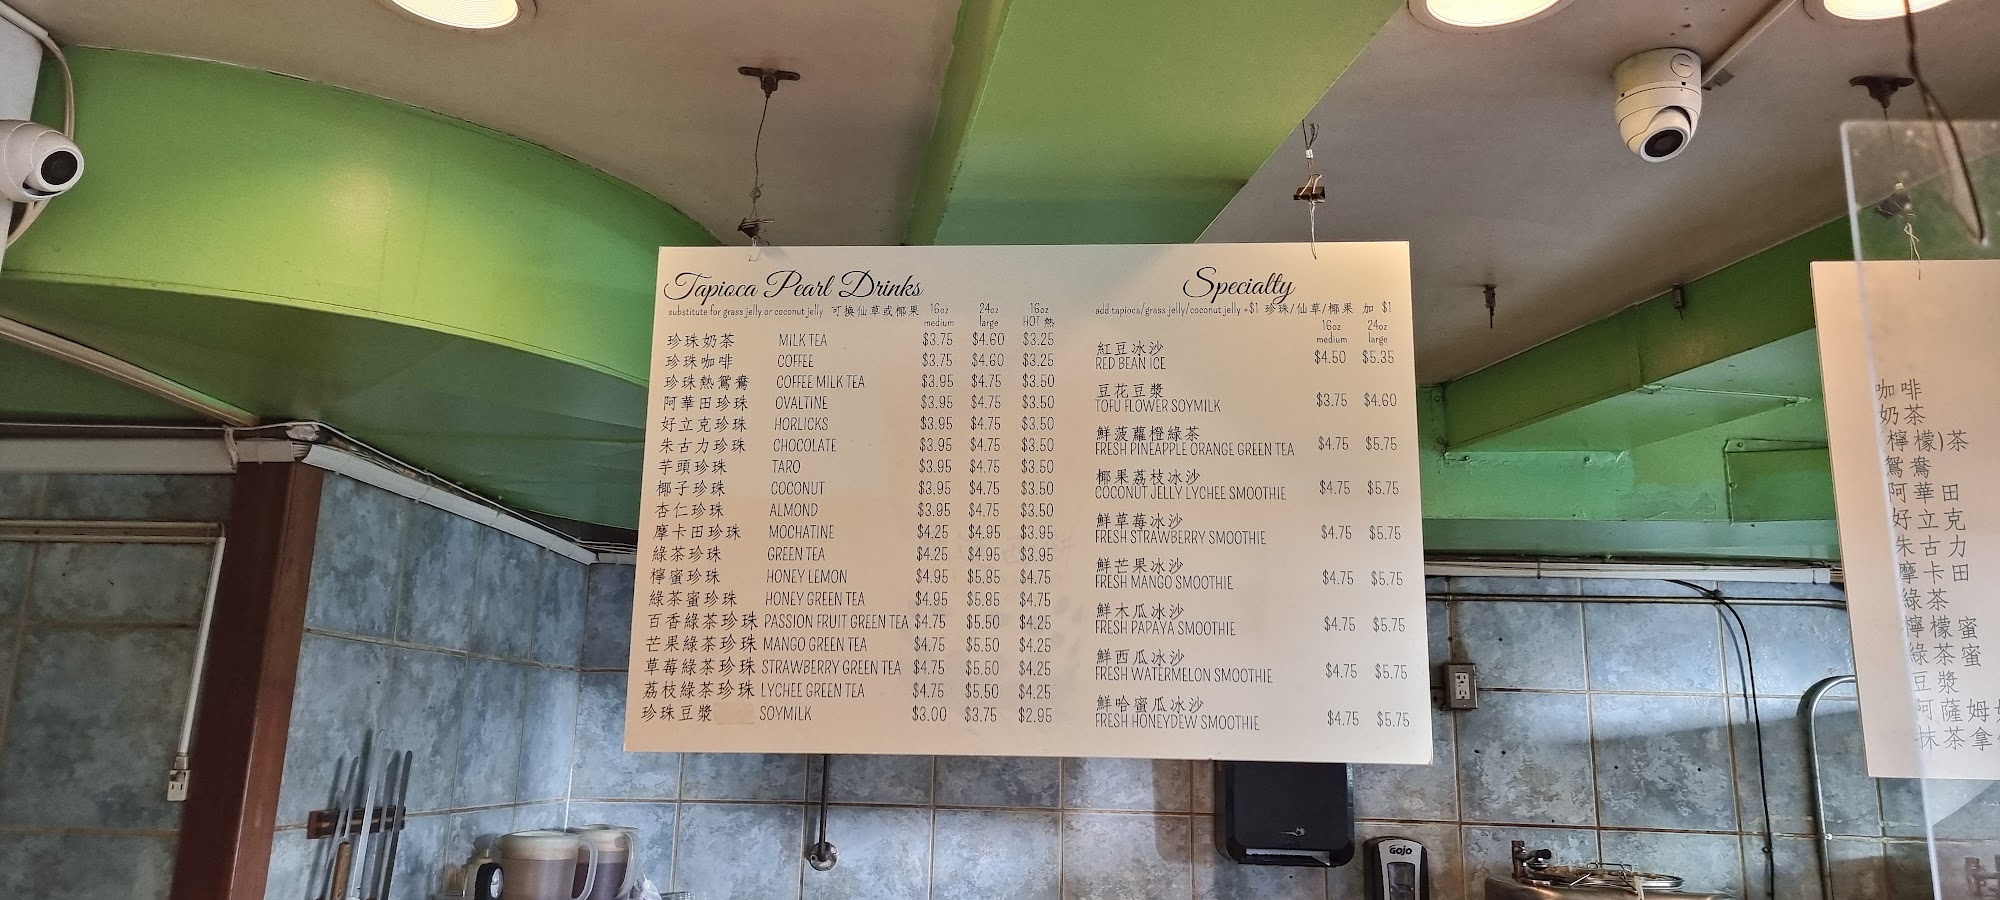 Tapioca Pearl Drinks
substitute for grass jelly or coconut jelly 可換仙草或椰果
16oz medium 24oz large 16oz HOT 熱
珍珠奶茶 MILK TEA $3.75 $4.60 $3.25
珍珠咖啡 COFFEE $3.75 $4.60 $3.25
珍珠熱鴛鴦 COFFEE MILK TEA $3.95 $4.75 $3.50
阿華田珍珠 OVALTINE $3.95 $4.75 $3.50
好立克珍珠 HORLICKS $3.95 $4.75 $3.50
朱古力珍珠 CHOCOLATE $3.95 $4.75 $3.50
芋頭珍珠 TARO $3.95 $4.75 $3.50
椰子珍珠 COCONUT $3.95 $4.75 $3.50
杏仁珍珠 ALMOND $3.95 $4.75 $3.50
摩卡田珍珠 MOCHATINE $4.25 $4.95 $3.95
綠茶珍珠 GREEN TEA $4.25 $4.95 $3.95
檸蜜珍珠 HONEY LEMON $4.95 $5.85 $4.75
綠茶蜜珍珠 HONEY GREEN TEA $4.95 $5.85 $4.75
百香綠茶珍珠 PASSION FRUIT GREEN TEA $4.75 $5.50 $4.25
芒果綠茶珍珠 MANGO GREEN TEA $4.75 $5.50 $4.25
草莓綠茶珍珠 STRAWBERRY GREEN TEA $4.75 $5.50 $4.25
荔枝綠茶珍珠 LYCHEE GREEN TEA $4.75 $5.50 $4.25
珍珠豆漿 SOYMILK $3.00 $3.75 $2.95
Specialty
add tapioca/grass jelly/coconut jelly +$1 珍珠/仙草/椰果 加 $1
16oz medium 24oz large
紅豆冰沙
RED BEAN ICE $4.50 $5.35
豆花豆漿
TOFU FLOWER SOYMILK $3.75 $4.60
鮮菠蘿橙綠茶
FRESH PINEAPPLE ORANGE GREEN TEA $4.75 $5.75
椰果荔枝冰沙
COCONUT JELLY LYCHEE SMOOTHIE $4.75 $5.75
鮮草莓冰沙
FRESH STRAWBERRY SMOOTHIE $4.75 $5.75
鮮芒果冰沙
FRESH MANGO SMOOTHIE $4.75 $5.75
鮮木瓜冰沙
FRESH PAPAYA SMOOTHIE $4.75 $5.75
鮮西瓜冰沙
FRESH WATERMELON SMOOTHIE $4.75 $5.75
鮮哈蜜瓜冰沙
FRESH HONEYDEW SMOOTHIE $4.75 $5.75
咖啡
奶茶
檸檬)茶
鴛鴦
阿華田
好立克
朱古力
摩卡田
綠茶
檸檬蜜
綠茶蜜
豆漿
阿薩姆
抹茶拿
GOJO